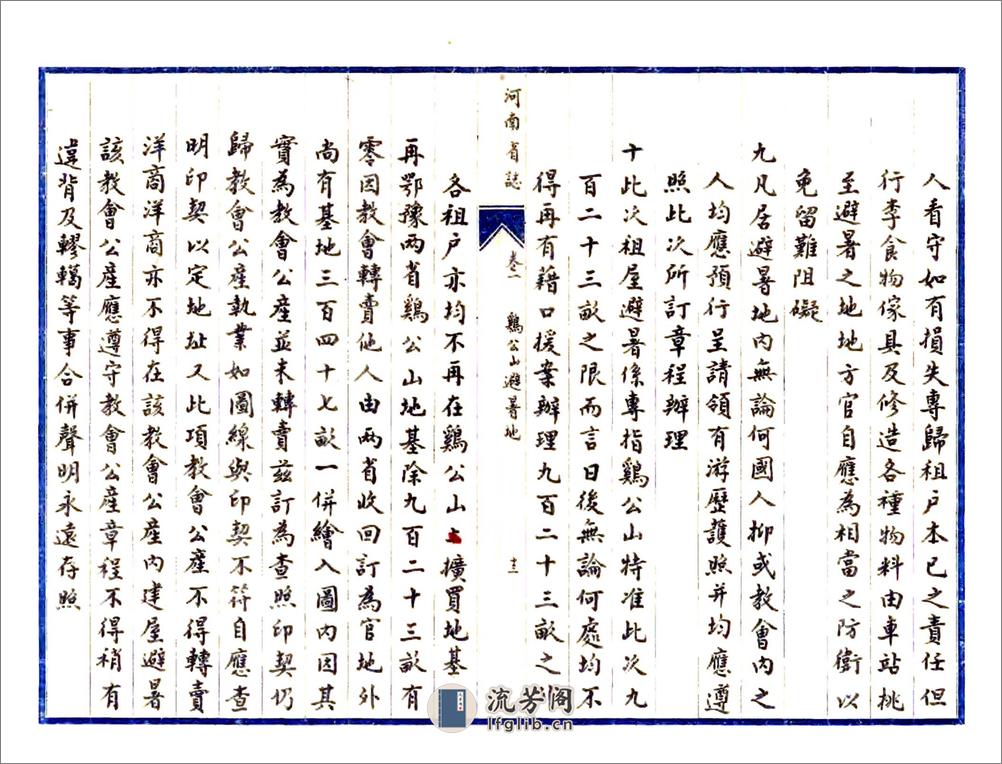 人看守如有損失專歸祖戶本已之責任但
行李食物傢具及修造各種物料由車站桃
至避暑之地地方官自應為相當之防衛以
免留難阻礙
九凡居避暑地內無論何國人抑或教會內之
人均應預行呈請領有游歷護照并均應遵
照此次所訂章程辦理
十此次祖屋避暑係專指鷄公山特准此次九
百二十三畝之限而言日後無論何處均不
得再有藉口援案辦理九百二十三畝之外
河南省誌 卷一 鷄公山避暑地 十三
各祖戶亦均不再在鷄公山上擴買地基
再鄂豫兩省鷄公山地基除九百二十三畝有
零因教會轉賣他人由兩省收回訂為官地外
尚有基地三百四十七畝一併繪入圖內因其
實為教會公產並未轉賣茲訂為查照印契仍
歸教會公產執業如圖線與印契不符自應查
明印契以定地址又此項教會公產不得轉賣
洋商洋商亦不得在該教會公產內建屋避暑
該教會公產應遵守教會公產章程不得稍有
違背及轇轕等事合併聲明永遠存照
流芳阁
lfglib.cn